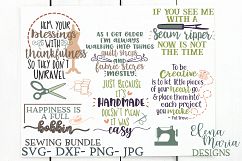 HEM YOUR
blessings
WITH
thankfulness
SO THEY DON'T
UNRAVEL
AS I GET OLDER
I'M ALWAYS
WALKING INTO THINGS
quilt shops and
fabric stores
mostly.
IF YOU SEE ME
WITH A
seam ripper
NOW IS NOT
THE TIME
JUST BECAUSE
IT'S
HANDMADE
DOESN'T MEAN
IT WAS
easy
To be
Creative
is to let little pieces
of your heart go
& place them into
each project you
make
HAPPINESS IS
A FULL
bobbin
SEWING BUNDLE
SVG- DXF- PNG- JPG
Elena
Maria
DESIGNS